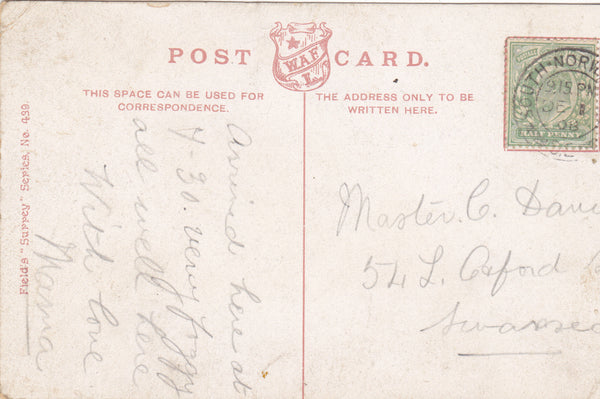 POST CARD.
W.A.F.
L.
THIS SPACE CAN BE USED FOR
CORRESPONDENCE.
THE ADDRESS ONLY TO BE
WRITTEN HERE.
Field's "Surrey" Series, No. 439.
Arrived here at
7-30. very foggy
all well here
With love
Mama
Master. C. Davi
54 Oxford
Swansea
SOUTH-NORW
9.15 PM
DE 1
08
HALF PENNY